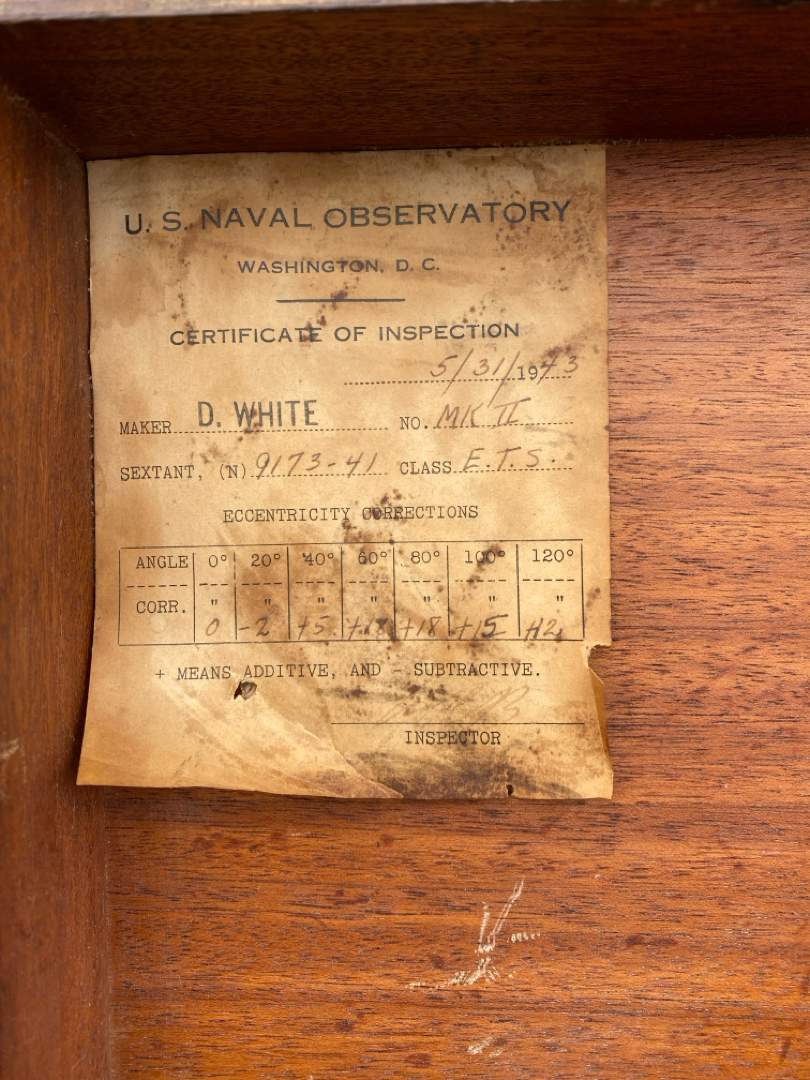 U. S. NAVAL OBSERVATORY
WASHINGTON, D. C.
CERTIFICATE OF INSPECTION
5/31/1943
MAKER D. WHITE NO. MK II
SEXTANT, (N) 9173-41 CLASS E.T.S.
ECCENTRICITY CORRECTIONS
ANGLE 0° 20° 40° 60° 80° 100° 120°
CORR. " " " " " " "
0 -2 +5 +18 +15
+ MEANS ADDITIVE, AND - SUBTRACTIVE.
INSPECTOR